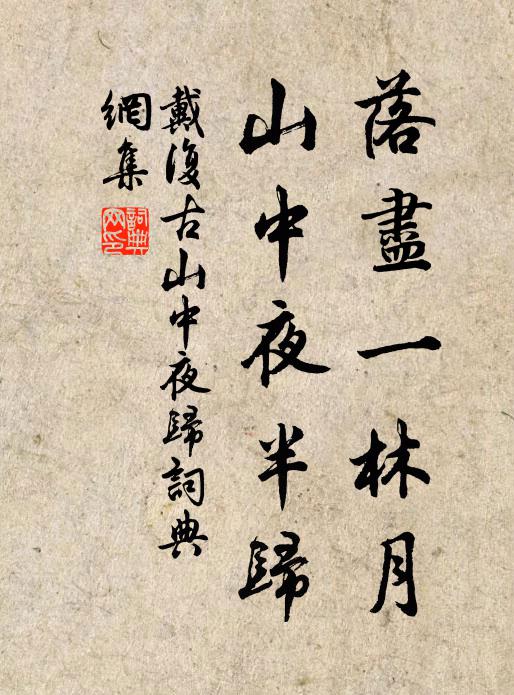 落盡一林月
山中夜半歸
戴復古山中夜歸詞典
網集
詞典
网印